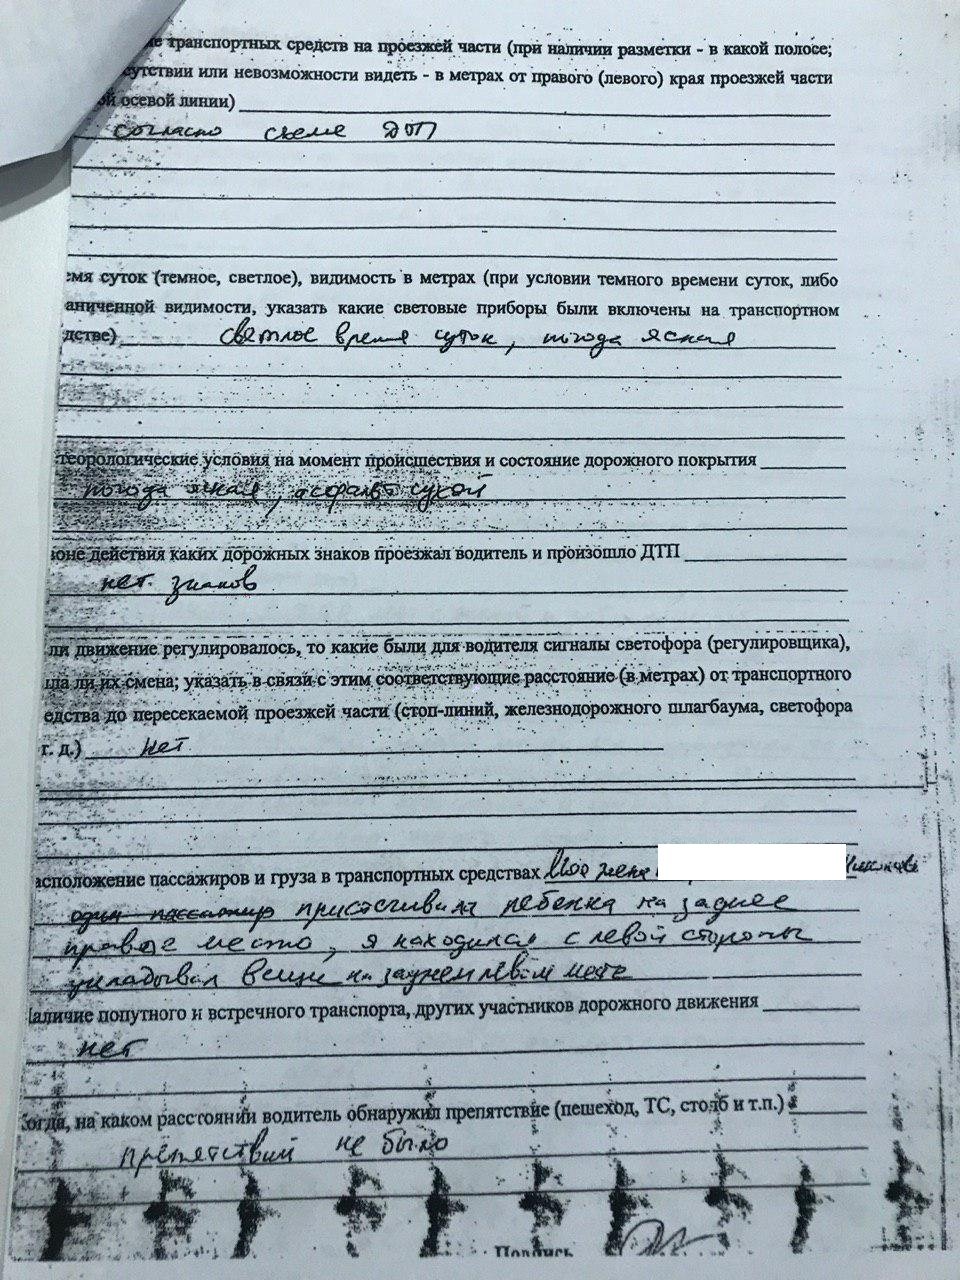 ие транспортных средств на проезжей части (при наличии разметки - в какой полосе;
сутствии или невозможности видеть - в метрах от правого (левого) края проезжей части
ой осевой линии)
согласно схеме ДТП
емя суток (темное, светлое), видимость в метрах (при условии темного времени суток, либо
аниченной видимости, указать какие световые приборы были включены на транспортном
дстве) светлое время суток, погода ясная
теорологические условия на момент происшествия и состояние дорожного покрытия
погода ясная, асфальт сухой
зоне действия каких дорожных знаков проезжал водитель и произошло ДТП
нет знаков
ли движение регулировалось, то какие были для водителя сигналы светофора (регулировщика),
ыла ли их смена; указать в связи с этим соответствующие расстояние (в метрах) от транспортного
едства до пересекаемой проезжей части (стоп-линий, железнодорожного шлагбаума, светофора
т. д.) нет
асположение пассажиров и груза в транспортных средствах Моя жена
один пассажир пристегивала ребенка на заднее
правое место, я находился с левой стороны
укладывал вещи на заднем левом месте
Наличие попутного и встречного транспорта, других участников дорожного движения
нет
Когда, на каком расстоянии водитель обнаружил препятствие (пешеход, ТС, столб и т.п.)
препятствий не было
Подпись